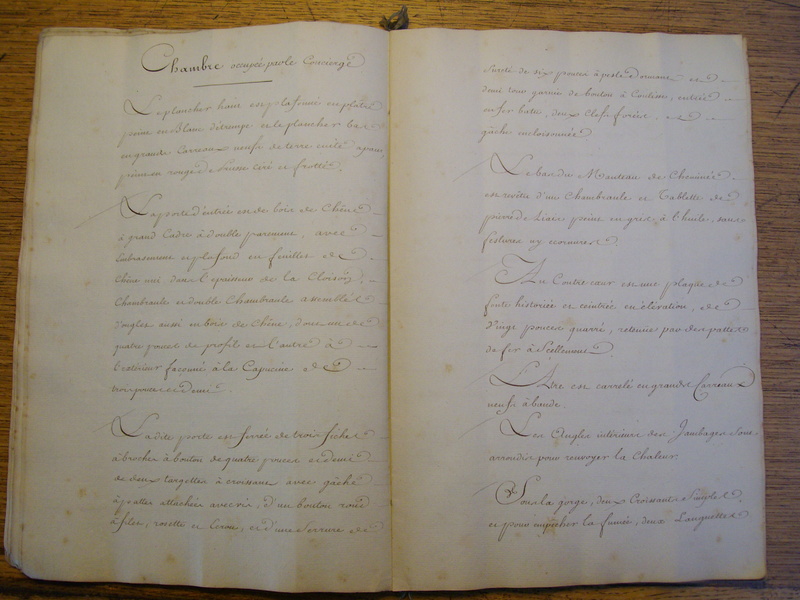 Chambre occupée par le Concierge
Le plancher haut est plafonné en plâtre
peint en Blanc détrempe et le plancher bas
en grands Carreaux neufs de terre cuite à pans,
peint en rouge de Prusse ciré et frotté.
La porte d'entrée est de bois de Chêne
à grand Cadre à double parement, avec
Embrasement et plafond en feuilles de
Chêne uni dans l'épaisseur de la Cloison,
Chambranle et double Chambranle assemblés
d'onglet aussi en bois de Chêne, dont un de
quatre pouces de profil et l'autre à
l'extérieur façonné à la Capucine de
trois pouces et demi.
La dite porte est ferrée de trois fiches
à broches à bouton de quatre pouces et demi
de deux targettes à croissant avec gâche
à pattes attachées avec vis, d'un bouton rond
à filets, rosette et Ecrou, et d'une Serrure de
sureté de six pouces à pesle dormant et
demi tour garnie de bouton à Coulisse, entrée
en fer battu, deux Clefs forées, et
gâche encloisonnée
Le bas du Manteau de Cheminée
est revêtu d'un Chambranle et Tablette de
pierre de Liais peint en gris à l'huile, sans
festures ny ecornures.
Au Contre cœur est une plaque de
fonte historiée et ceintrée en élévation, de
vingt pouces quarré, retenue par des pattes
de fer à Scellement.
L'Atre est carrelé en grands Carreaux
neufs à bande.
Les Angles intérieurs des Jambages sont
arrondis pour renvoyer la Chaleur.
Sous la gorge, deux Croissants Simples,
et pour empêcher la fumée, deux Languettes